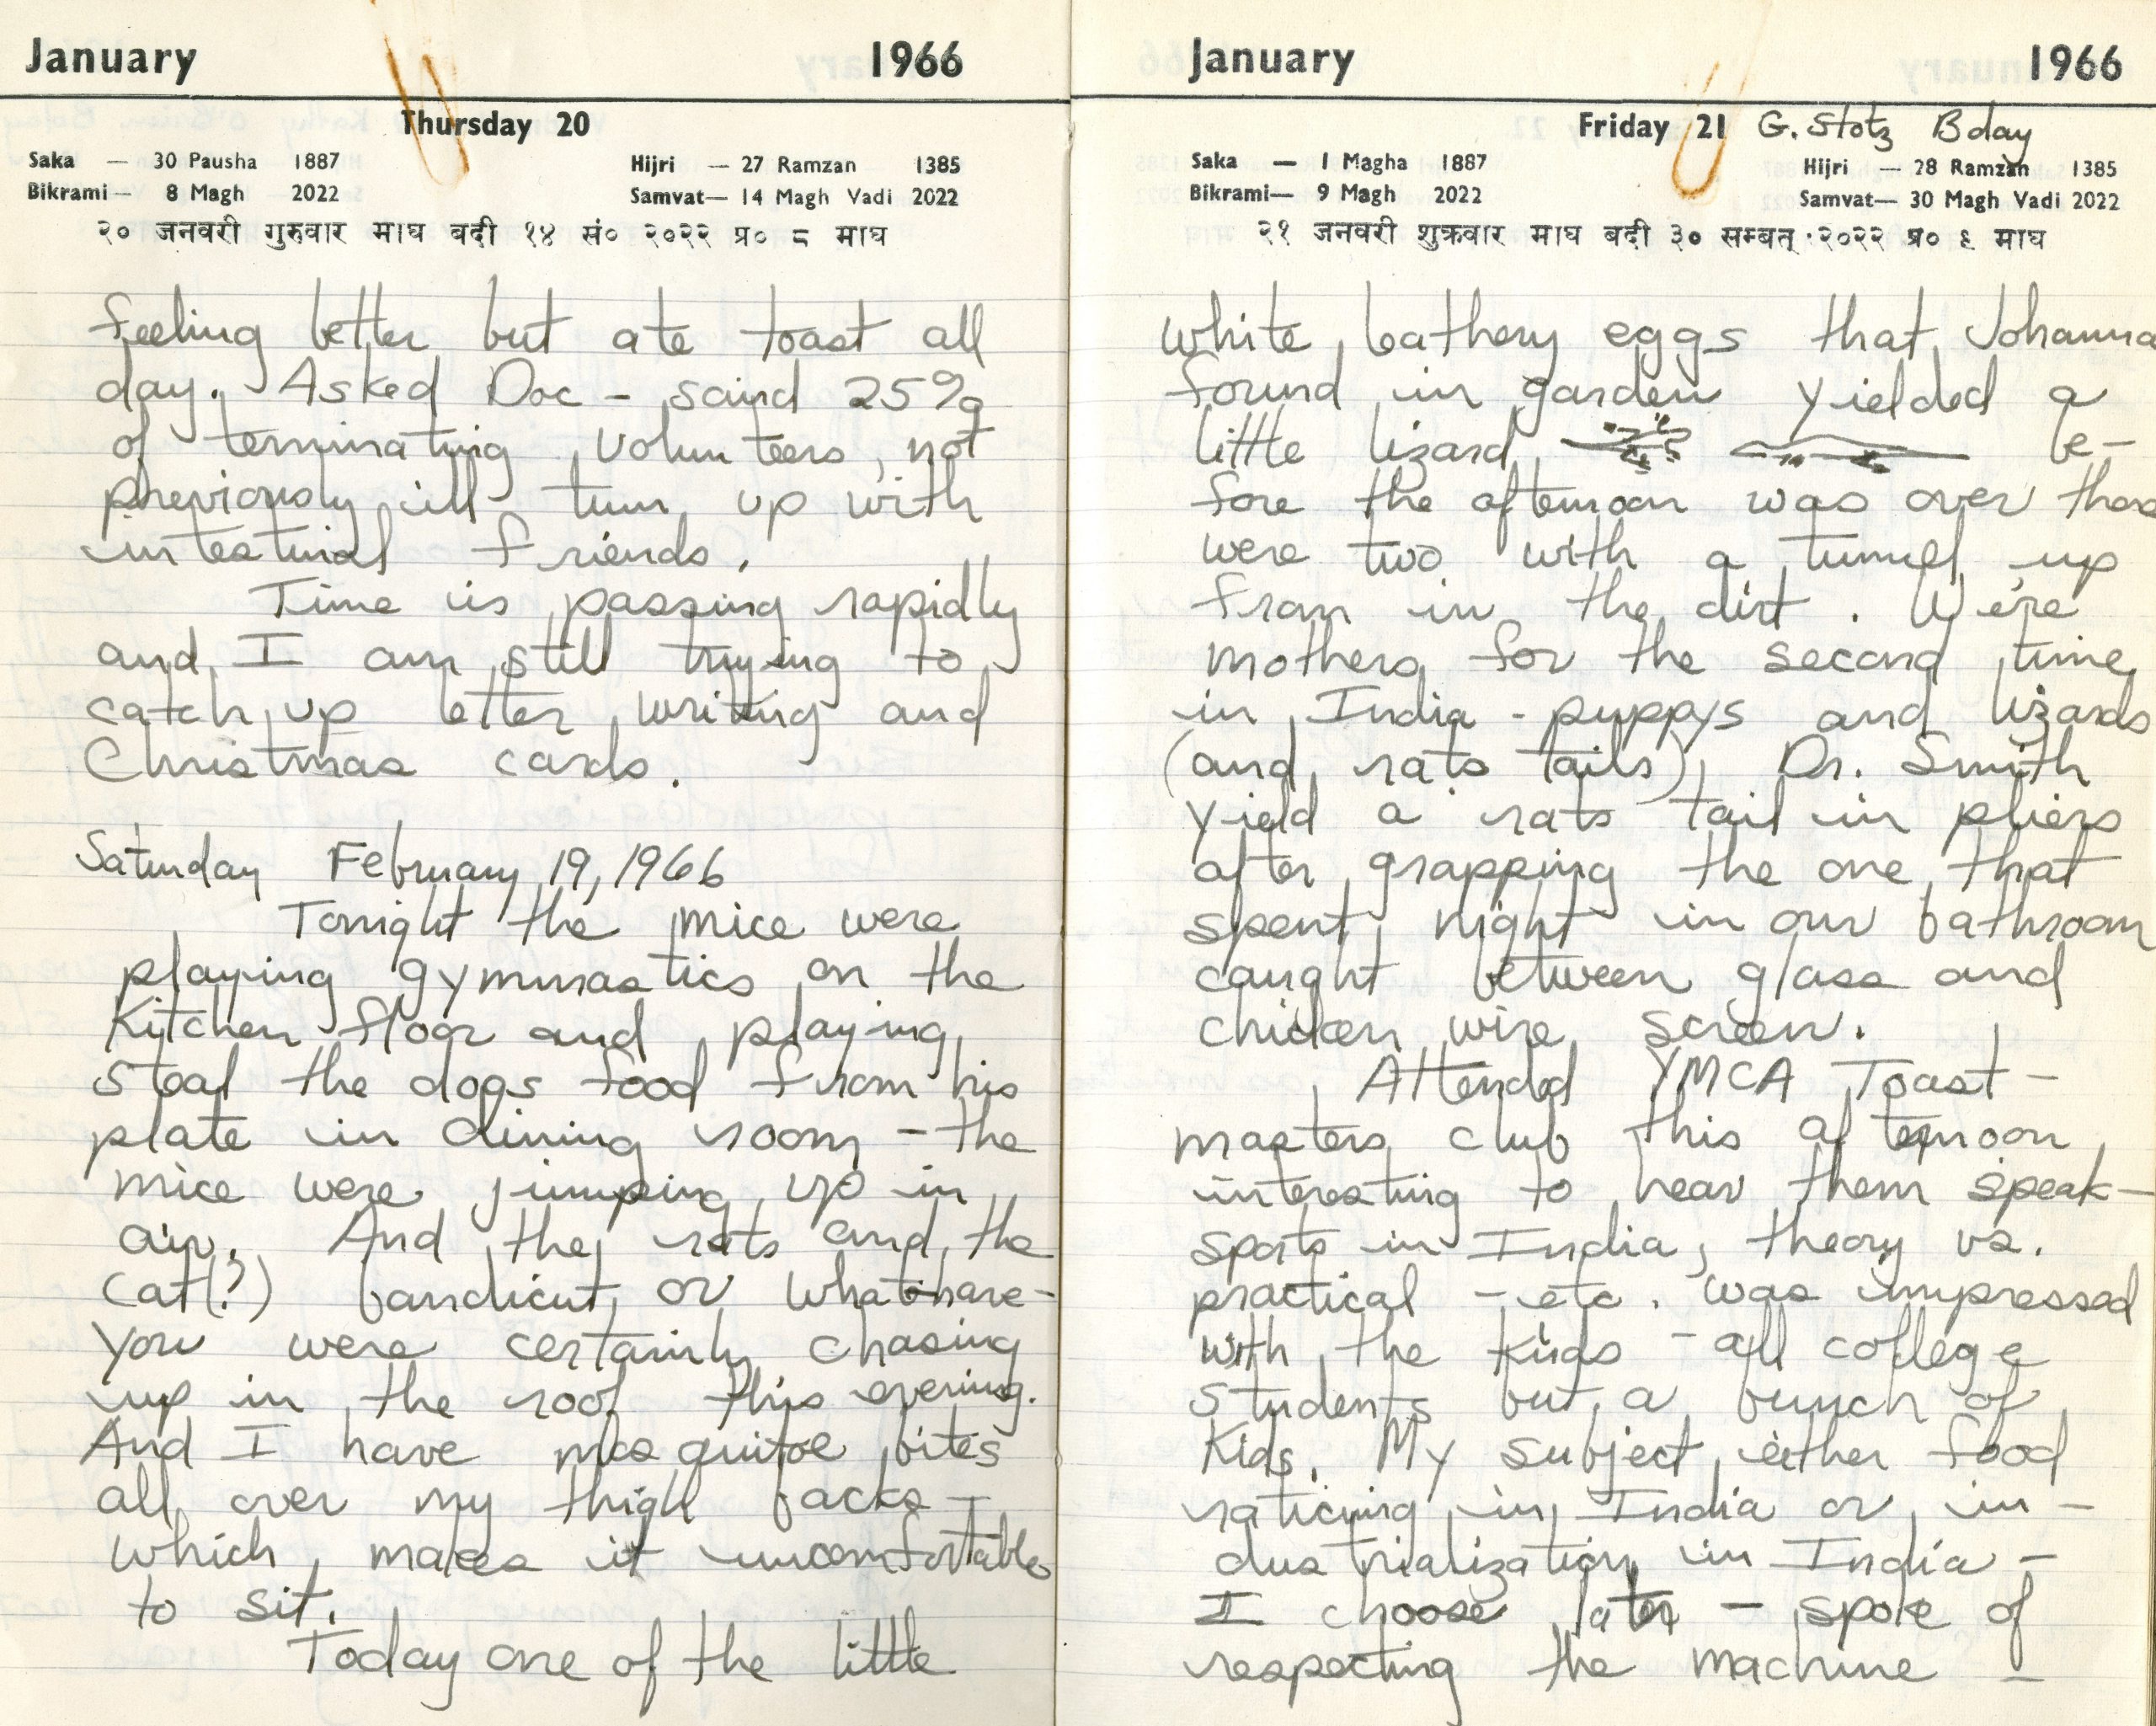 January 1966
Thursday 20
Saka — 30 Pausha 1887 Hijri — 27 Ramzan 1385
Bikrami — 8 Magh 2022 Samvat — 14 Magh Vadi 2022
२० जनवरी गुरुवार माघ बदी १४ सं० २०२२ प्र० ८ माघ
feeling better but ate toast all
day. Asked Doc - said 25%
of terminating volunteers, not
previously ill turn up with
intestinal friends.
Time is passing rapidly
and I am still trying to
catch up letter writing and
Christmas cards.
Saturday February 19, 1966
Tonight the mice were
playing gymnastics on the
Kitchen floor and playing
steal the dogs food from his
plate in dining room - the
mice were jumping up in
air. And the rats and the
cat(?) bandicut or what-have-
you were certainly chasing
up in the roof this evening.
And I have mosquitoe bites
all over my thigh backs -
which makes it uncomfortable
to sit.
Today one of the little
January 1966
Friday 21 G. Stotz Bday
Saka — 1 Magha 1887 Hijri — 28 Ramzan 1385
Bikrami — 9 Magh 2022 Samvat — 30 Magh Vadi 2022
२१ जनवरी शुक्रवार माघ बदी ३० सम्बत् २०२२ प्र० ९ माघ
white leathery eggs that Johanna
found in garden yielded a
little lizard be-
fore the afternoon was over there
were two with a tunnel up
from in the dirt. We're
mothers for the second time
in India - puppys and lizards
(and rats tails), Dr. Smith
yield a rats tail in pliers
after grapping the one that
spent night in our bathroom
caught between glass and
chicken wire screen.
Attended YMCA Toast-
masters club this afternoon
interesting to hear them speak -
sports in India, theory vs.
practical - etc. was impressed
with the kids - all college
students but a bunch of
Kids. My subject either food
rationing in India or in-
dustrialization in India -
I choose later - spoke of
respecting the machine -